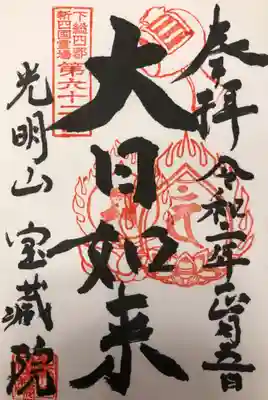 奉拝 令和二年正月五日
下総四郡
新四国霊場
第六十二
大日如来
光明山 宝蔵院